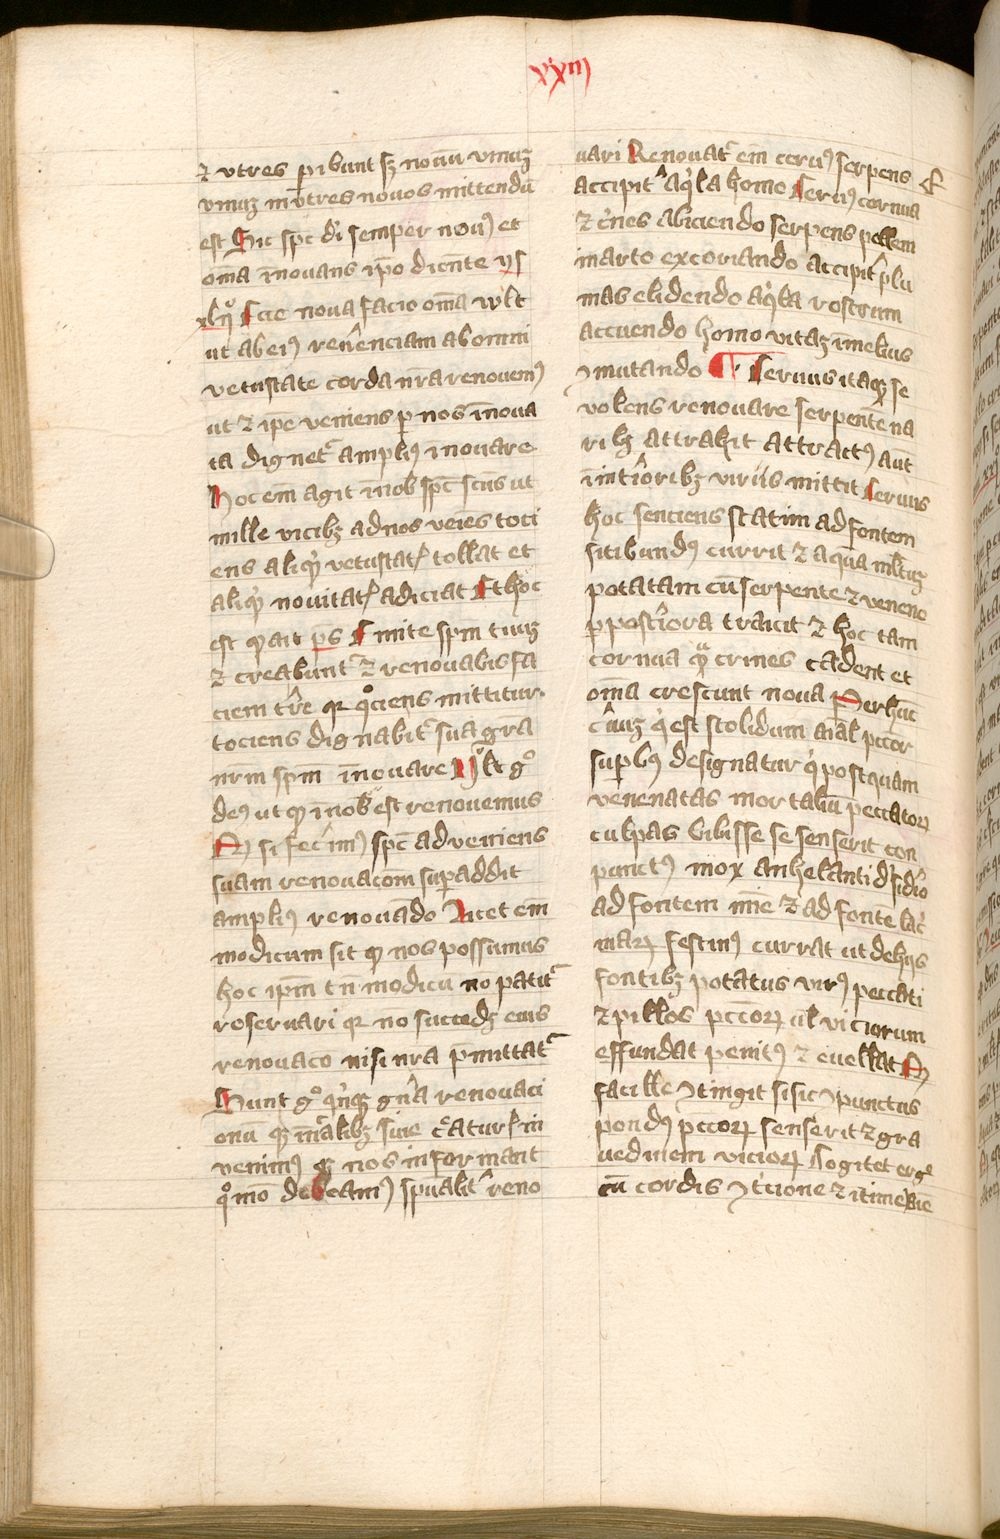 xxiij
⁊ vtres ꝑibunt sꝫ nouū vinuꝫ
vinuꝫ in vtres nouos mittendū
est Sic spc̄ di semper nouꝰ et
om̄a īnouans ip̄o dicn̄te ys
xliij Ecce noua facio om̄a wlt
ut ab eiꝰ reūenciam ab omni
vetustate corda nr̄a renouemꝰ
ut ⁊ ip̄e veniens ꝑ nos īnoua
ta dignetᷣ ampliꝰ īnouare
Hoc em̄ agit ī nob̄ spc̄ scūs ut
mille vicibꝫ ad nos veīēs toci
ens aliqͥd vetustatꝭ tollat et
aliqͥd nouitatꝭ adiciat Et hoc
est ꝙ ait ps̄ Emite spm̄ tuuꝫ
⁊ creabuntᷣ ⁊ renouabis fa
ciem tr̄e qꝛ qͦciens mittitur
tociens dignabitᷣ sua gr̄a
nr̄m spm̄ īnouare Wlt gͦ
deꝰ ut ꝙ ī nob̄ est renouemus
Qꝺ si fec̄imꝰ spc̄ adveniens
suam renouacōm suꝑaddit
ampliꝰ renouādo Licet em̄
modicum sit ꝙ nos possumus
hoc ip̄m tn̄ modicū no patitᷣ
reseruari qꝛ no succedꝫ eius
renouaco nisi nr̄a p̄mittatᷣ
Sunt gͦ qͥnqꝫ gn̄a renouaci
onū qꝫ in aͣlibꝫ siue cᷓaturꝭ in
venimꝰ qꝫ nos informant
qͦmo debeamꝰ spūalitᷣ reno
uari Renouatᷣ em̄ ceruꝰ serpens
accipitᷣ aqͥla homo Ceruꝰ cornua
⁊ cͥnes abiciendo serpens pellem
in arto excoriando accipitᷣ plu
mas elidendo aqͥla rostrum
accuendo homo vitaꝫ ī melius
ꝯmutando ¶ Ceruus itaqꝫ se
volens renouare serpentē na
ribꝫ attrahit attractꝰ aūt
ī intͥoribꝫ virus mittit Ceruus
hoc senciens statim ad fontem
sitibundꝰ currit ⁊ aquā mltuꝫ
potatam cū serpente ⁊ veneno
ꝑ postͥora traicit ⁊ hoc tam
cornua qͣ crines cadent et
om̄a crescunt noua Per hūc
c̄uuꝫ qͥ est stolidum aīal pccōr
suꝑbꝰ designatur qͥ postquam
venenatas mortaliū peccatoꝝ
culpas bibisse se senserit con
punctꝰ mox anhelanti dꝭsidͥo
ad fontem mīe ⁊ ad fontē lac̄
maꝝ festinꝰ currat ut de hijs
fontibꝫ potatus virꝰ peccati
⁊ pillos pcc̄oꝝ ul̄ viciorum
effundat penitꝰ ⁊ euellat Qꝺ
facille ꝯtingit si sic ꝯpunctus
pondꝰ pcc̄oꝝ senserit ⁊ gra
uedinem vicioꝝ Cogitet ergͦ
cū cordis ꝯtͥcione ⁊ itime